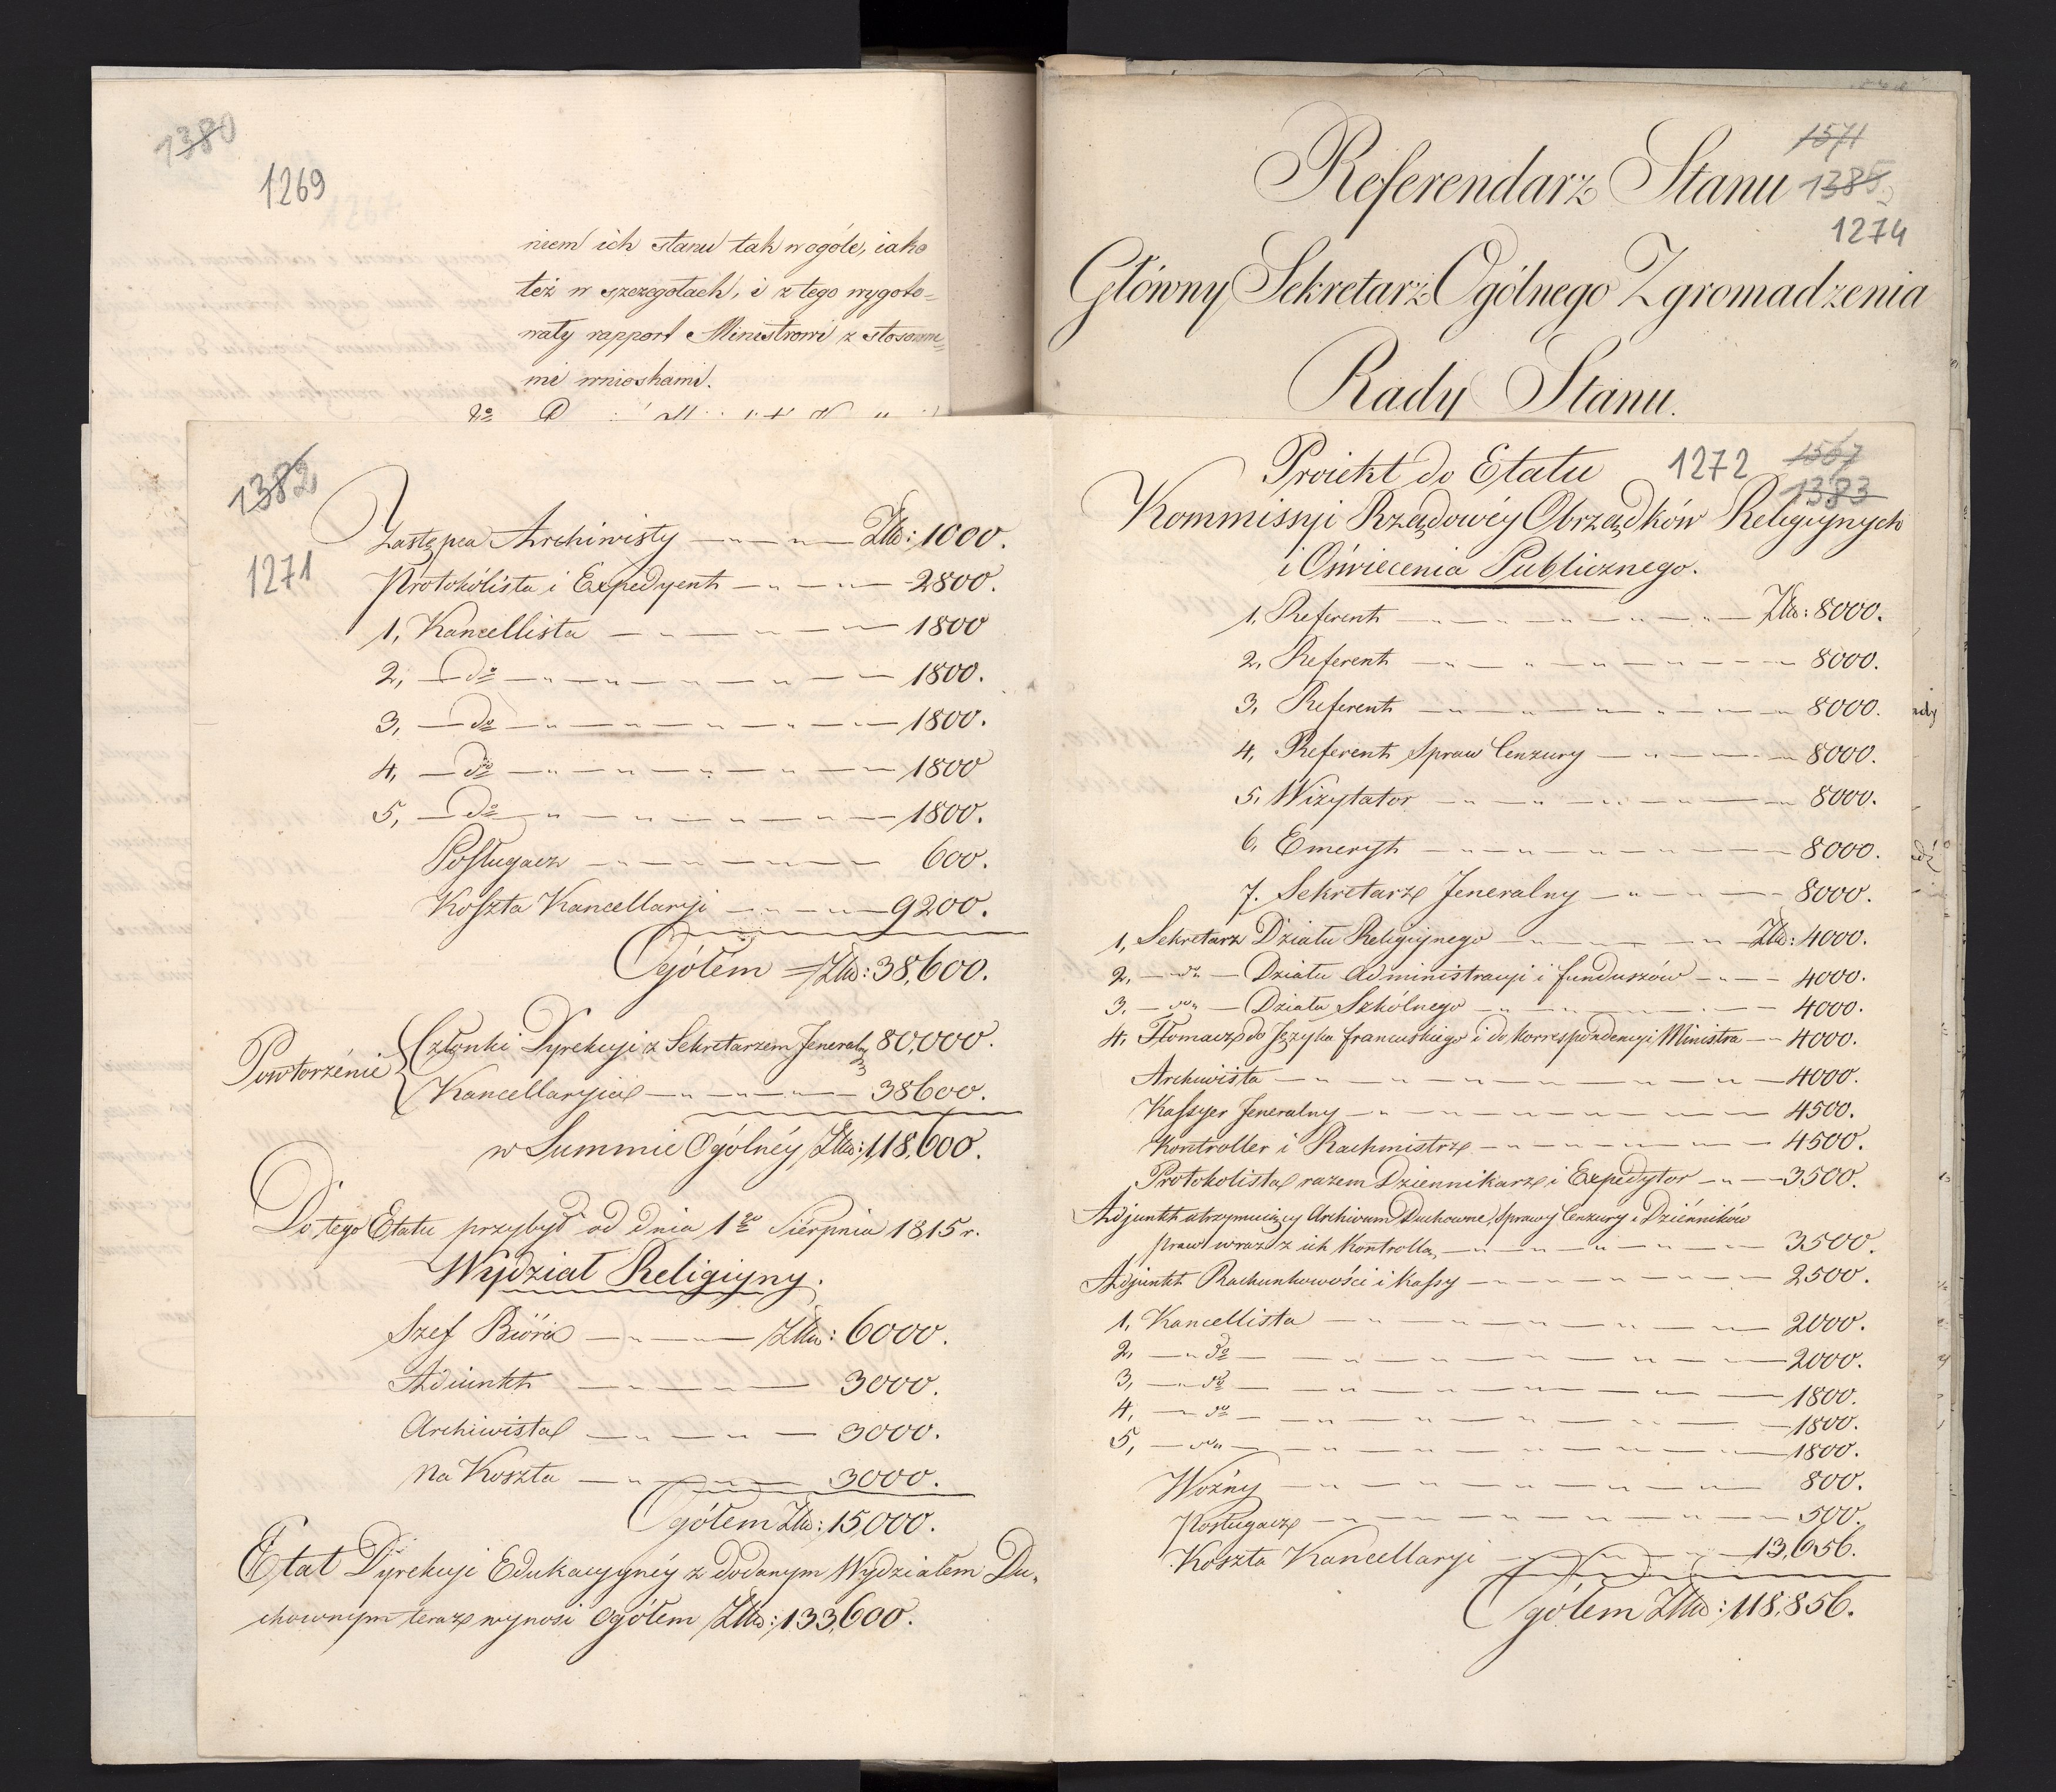 1380
1269
niem ich stanu tak w ogóle, iako
też w szczegółach, i z tego wygoto=
wały rapport Ministrowi z stosowne=
mi wnioskami.
1571
Referendarz Stanu 1385
1274
Główny Sekretarz Ogólnego Zgromadzenia
Rady Stanu.
1382
1271
Zastępca Archiwisty — „ — „ — Złło: 1000.
Protokólista i Expedyent — „ — „ — 2800.
1, Kancellista — „ — „ — 1800
2, — do — „ — „ — 1800.
3, — do — „ — „ — 1800.
4, — do — „ — „ — 1800
5, — do — „ — „ — 1800.
Posługacz — „ — „ — 600.
Koszta Kancellaryi — „ — „ — 9200.
Ogółem = Złło: 38,600.
Powtorzénie
Członki Dyrekcyi z Sekretarzem Jeneraln 80,000.
Kancellaryia — „ — „ — 38600.
w Summie Ogólnéy Złło: 118,600.
Do tego Etatu przybył od dnia 1go Sierpnia 1815 r.
Wydział Religiyny.
Szef Bióra — „ — „ — Złło: 6000.
Adiunkt — „ — „ — 3000.
Archiwista — „ — „ — 3000.
Na Koszta — „ — „ — 3000.
Ogółem Złło: 15,000.
Etat Dyrekcyi Edukacyynéy z dodanym Wydziałem Du„
chownym teraz wynosi Ogółem Złło: 133,600.
Proiekt do Etatu 1272 1567
1383
Kommissyi Rządowéy Obrządków Religiynych
i Oświecenia Publicznego.
1. Referent — „ — „ — Złło: 8000.
2, Referent — „ — „ — 8000.
3, Referent — „ — „ — 8000.
4, Referent Spraw Cenzury — „ — „ — 8000.
5, Wizytator — „ — „ — 8000.
6. Emeryt — „ — „ — 8000.
7. Sekretarz Jeneralny — „ — „ — 8000.
1, Sekretarz Działu Religiynego — „ — „ Złło: 4000.
2, — do — Działu Administracyi i funduszów — „ — 4000.
3. — do — Działu Szkólnego — „ — „ — 4000.
4. Tłomacz do Języka francuskiego i do korrespondencyi Ministra — „ 4000.
Archiwista — „ — „ — 4000.
Kassyer Jeneralny — „ — „ — 4500.
Kontroller i Rachmistrz — „ — „ — 4500.
Protokolista razem Dziennikarz i Expedytor — „ — 3500.
Adjunkt utrzymuiący Archivum Duchowne, Sprawy Cenzury i Dziénników
praw wraz z ich Kontrollą — „ — „ — 3500.
Adjunkt Rachunkowości i Kassy — „ — „ — 2500.
1, Kancellista — „ — „ — 2000.
2, — „ do — „ — „ — 2000.
3, — „ do — „ — „ — 1800.
4, — „ do — „ — „ — 1800.
5, — do — „ — „ — 1800.
Woźny — „ — „ — 800.
Posługacz — „ — „ — 500.
Koszta Kancellaryi — „ — „ — 13,656.
Ogółem Złło: 118,856.